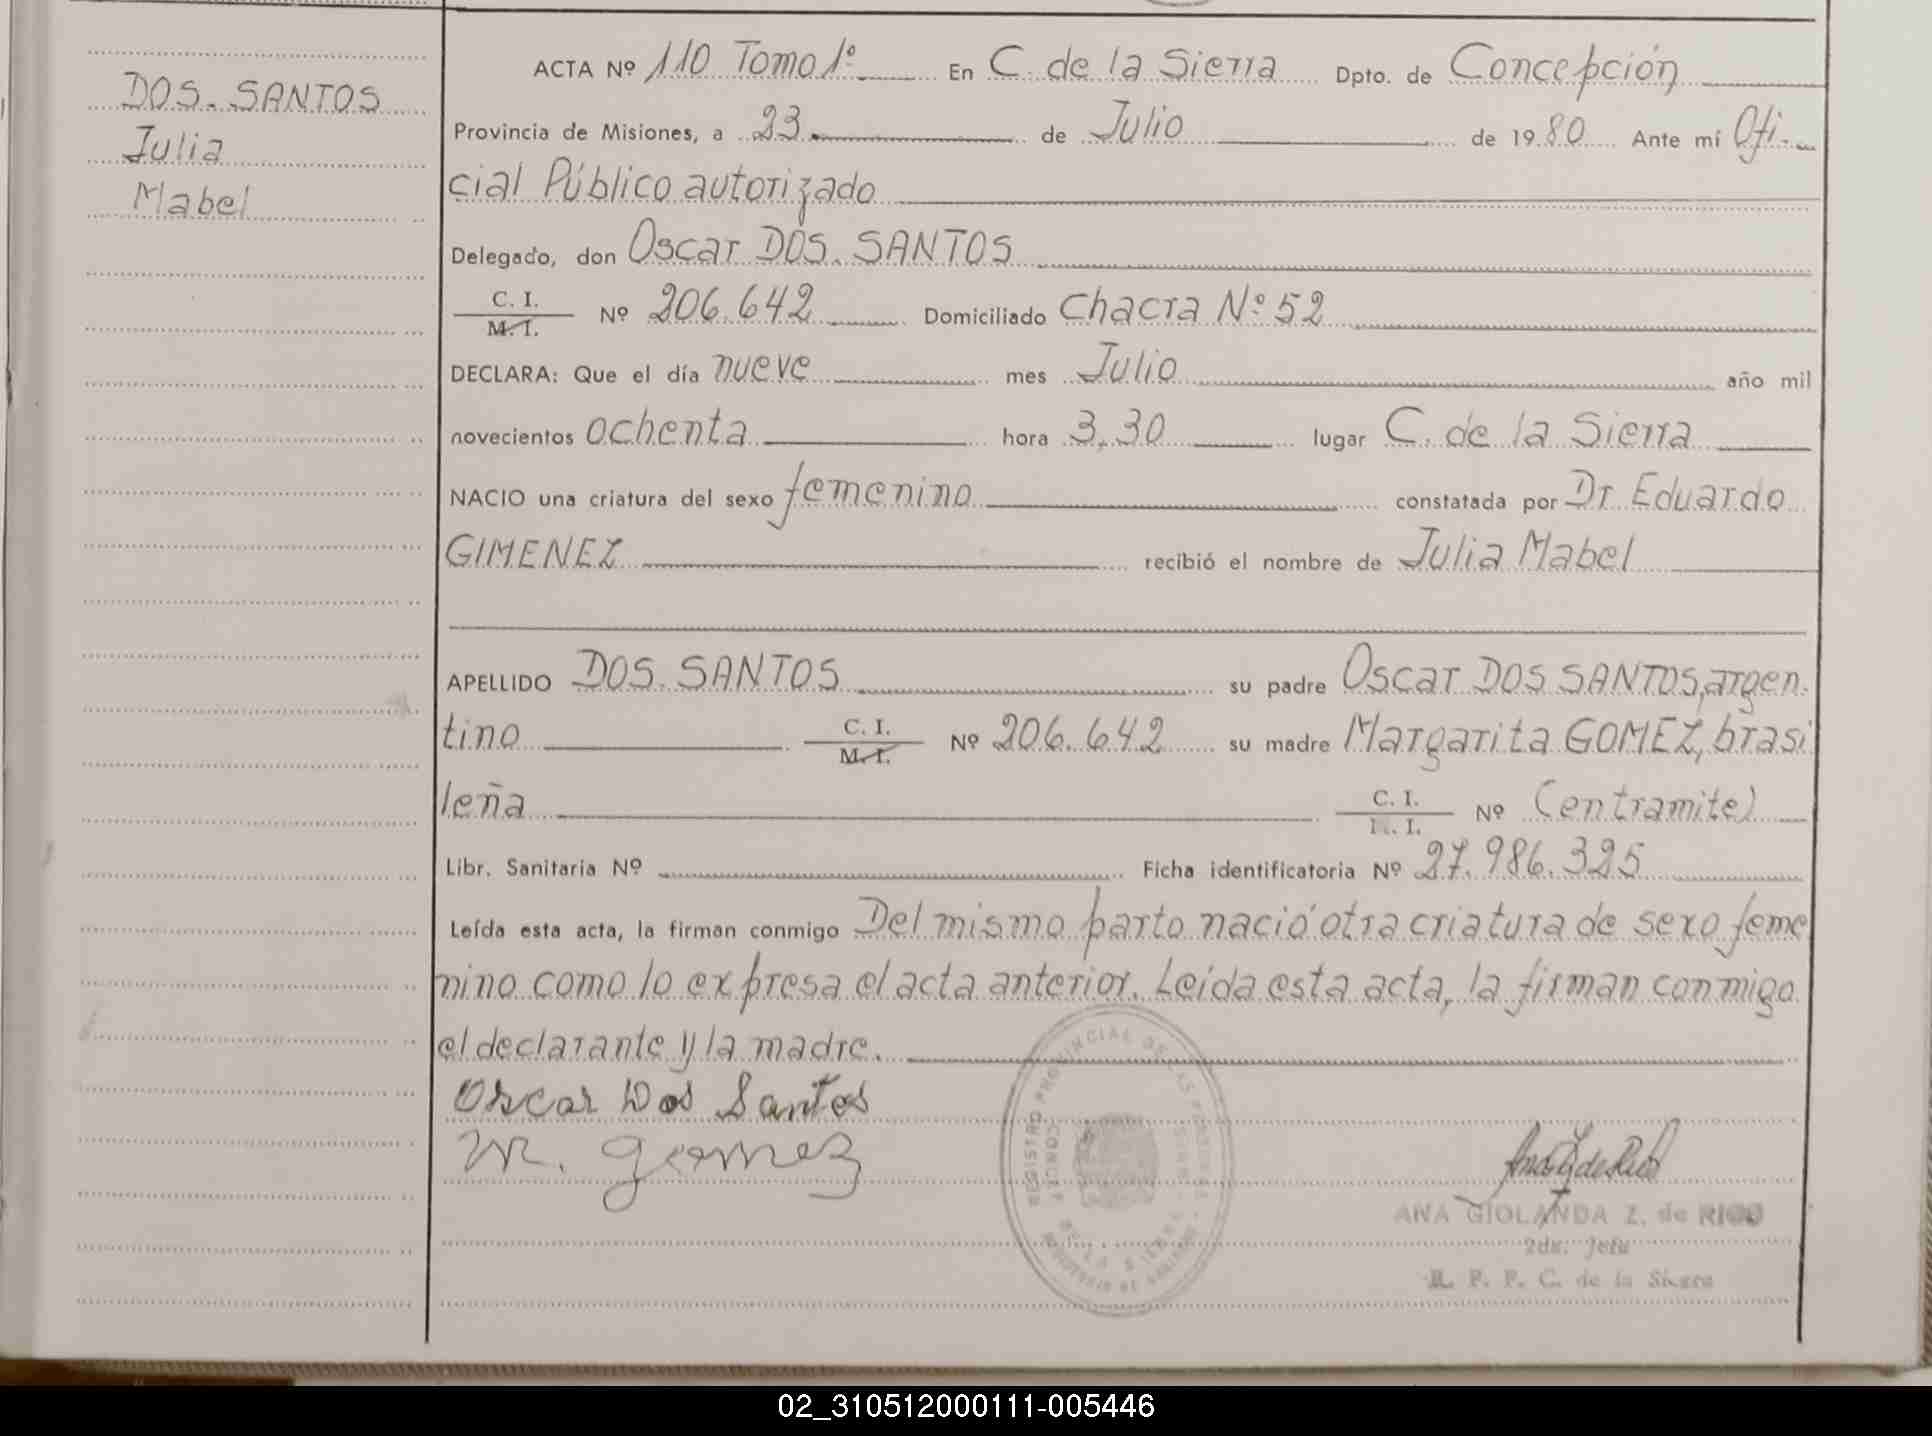 DOS. SANTOS
Julia
Mabel
ACTA Nº 110 Tomo 1º En C. de la Sierra Dpto. de Concepción
Provincia de Misiones, a 23 de Julio de 1980 Ante mí Ofi-
cial Público autorizado
Delegado, don Oscar DOS. SANTOS
C. I.
M. I. Nº 206.642 Domiciliado Chacra Nº 52
DECLARA: Que el día nueve mes Julio año mil
novecientos ochenta hora 3,30 lugar C. de la Sierra
NACIO una criatura del sexo femenino constatada por Dr. Eduardo
GIMENEZ recibió el nombre de Julia Mabel
APELLIDO DOS. SANTOS su padre Oscar DOS SANTOS, argen-
tino C. I.
M. I. Nº 206.642 su madre Margarita GOMEZ, brasi
leña C. I.
M. I. Nº (en tramite)
Libr. Sanitaria Nº Ficha identificatoria Nº 27.986.325
Leída esta acta, la firman conmigo Del mismo parto nació otra criatura de sexo feme
nino como lo expresa el acta anterior. Leída esta acta, la firman conmigo
el declarante y la madre.
Oscar Dos Santos
M. Gomez
REGISTRO PROVINCIAL DE LAS PERSONAS
ANA GIOLANDA Z. de RICO
2da. Jefe
R. P. P. C. de la Sierra
02_310512000111-005446